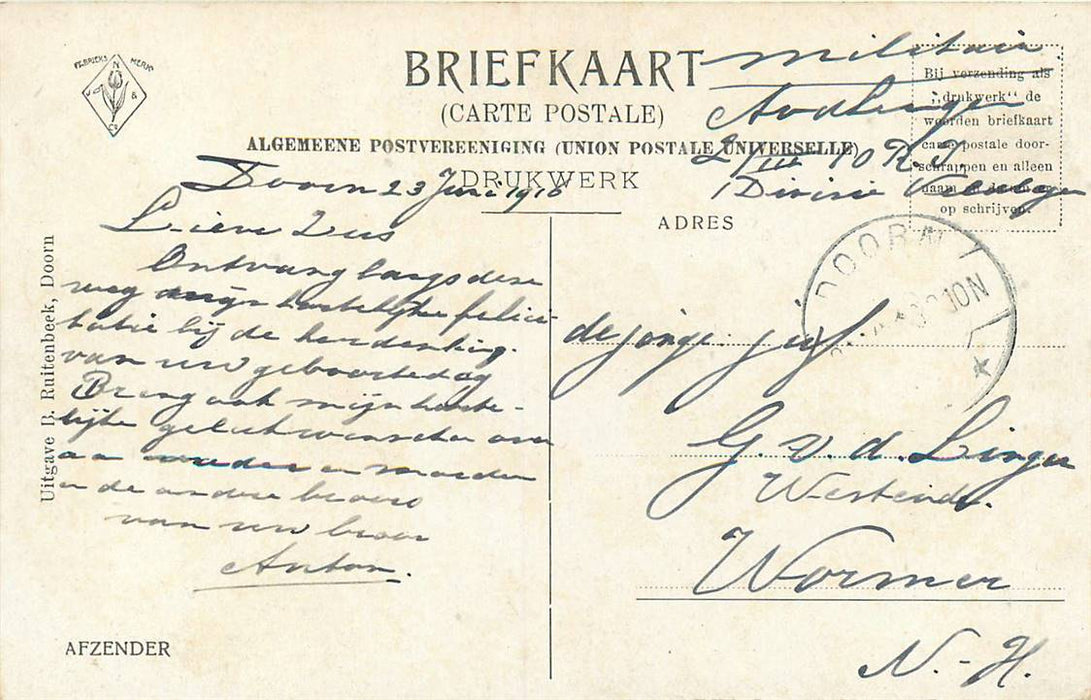 FABRIEKS MERK
N
J &
Co
BRIEFKAART
(CARTE POSTALE)
ALGEMEENE POSTVEREENIGING (UNION POSTALE UNIVERSELLE)
DRUKWERK
Militair
2/III 10 R.I.
1 Divisie
Bij verzending als
„drukwerk“ de
woorden briefkaart
carte postale door-
schrappen en alleen
naam en datum er
op schrijven.
ADRES
DOORN
10N
Doorn 23 Juni 1916
Lieve Zus
Ontvang langs deze
weg mijn hartelijke felici-
tatie bij de herdenking
van uw geboortedag
Breng ook mijn harte-
lijke gelukwenschen over
aan vader en moeder
en de andere broers
van uw broer
Anton.
de jonge juf
G. v. d. Lingen
Westeinde.
Wormer
N.-H.
AFZENDER
Uitgave B. Ruitenbeek, Doorn